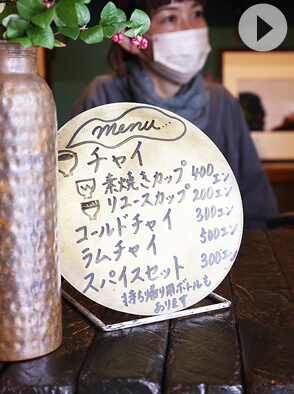 menu...
チャイ
素焼きカップ 400エン
リユースカップ 200エン
コールドチャイ 300エン
ラムチャイ 500エン
スパイスセット 300エン
持ち帰り用ボトルも
あります